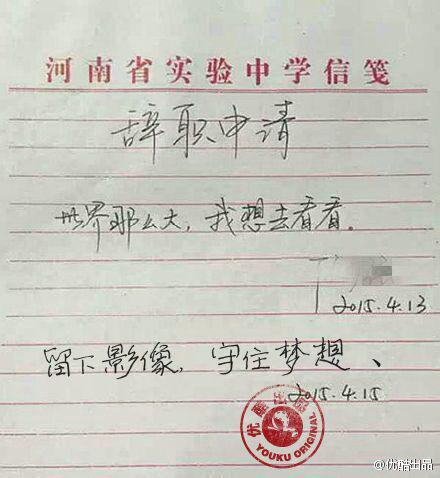 河南省实验中学信笺
辞职申请
世界那么大，我想去看看.
2015.4.13
留下影像，守住梦想、
2015.4.15
优酷出品
YOUKU ORIGINAL
@优酷出品